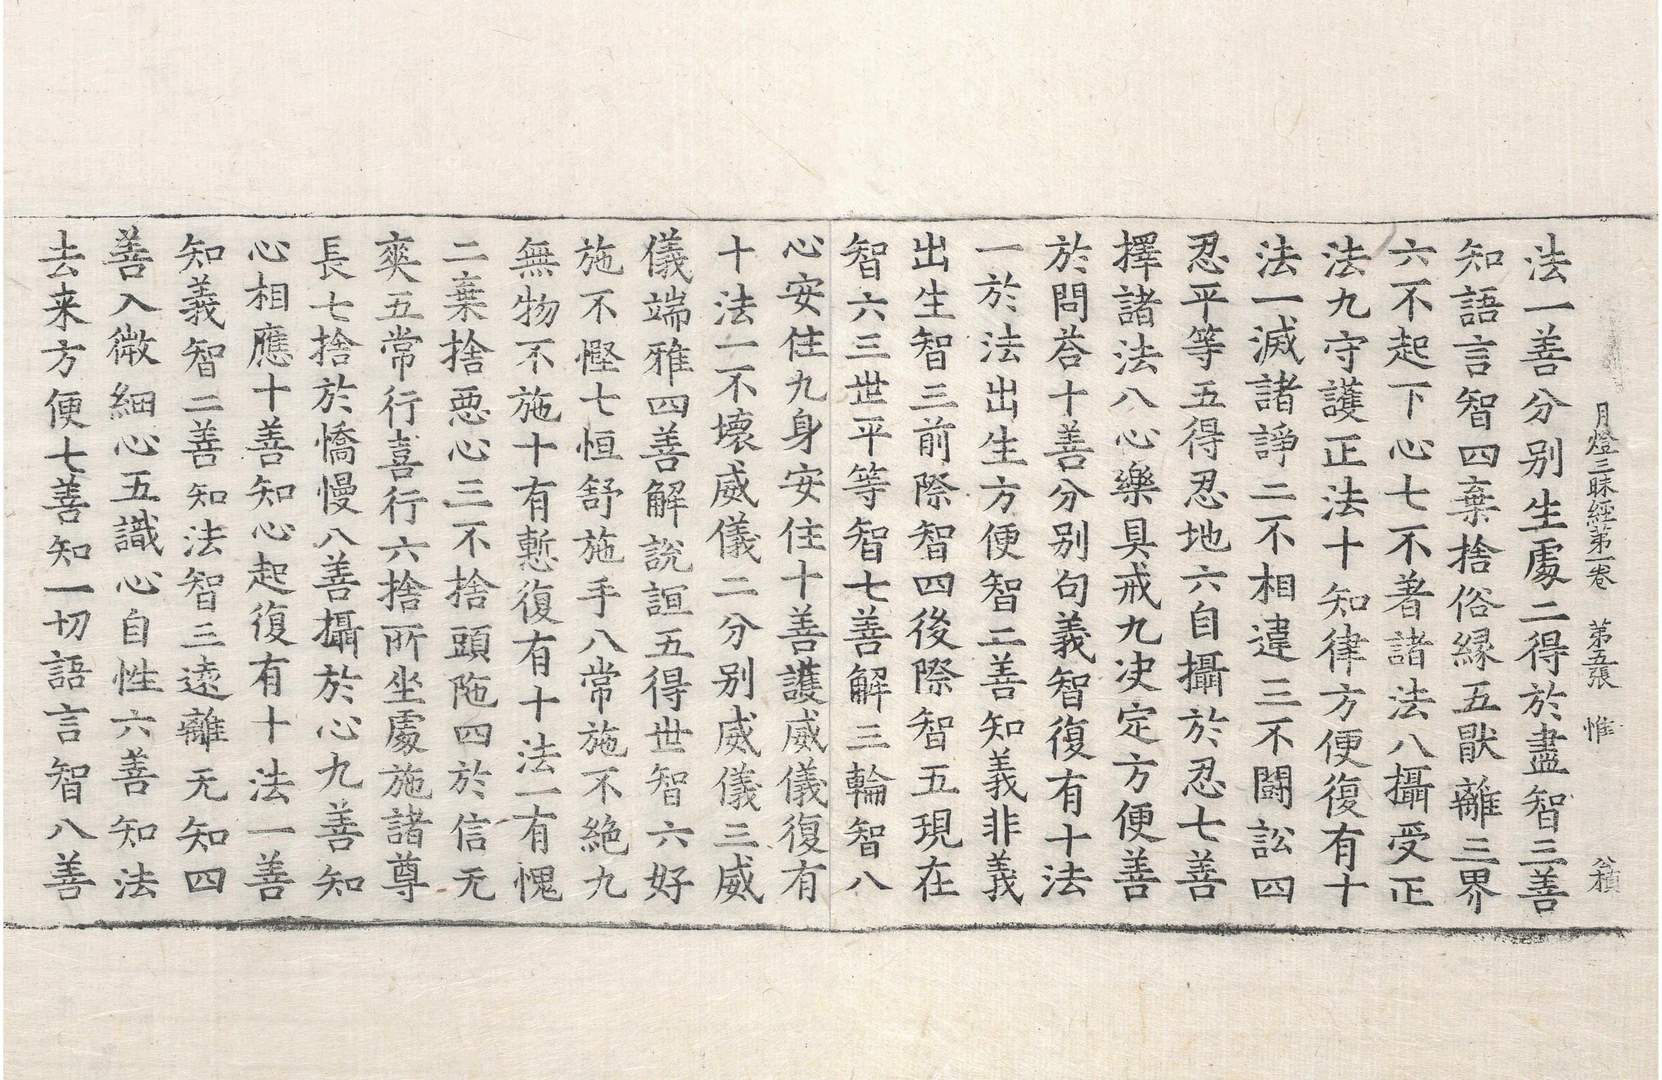 月燈三昧經第一卷　第五張　惟　公稹
法一善分别生處二得於盡智三善
知語言智四棄捨俗縁五猒離三界
六不起下心七不著諸法八攝受正
法九守護正法十知律方便復有十
法一滅諸諍二不相違三不鬪訟四
忍平等五得忍地六自攝於忍七善
擇諸法八心樂具戒九决定方便善
於問荅十善分别句義智復有十法
一於法出生方便智二善知義非義
出生智三前際智四後際智五現在
智六三世平等智七善解三輪智八
心安住九身安住十善護威儀復有
十法一不壞威儀二分别威儀三威
儀端雅四善解說諠五得世智六好
施不慳七恒舒施手八常施不絶九
無物不施十有慙復有十法一有愧
二棄捨惡心三不捨頭陁四於信无
爽五常行喜行六捨所坐處施諸尊
長七捨於憍慢八善攝於心九善知
心相應十善知心起復有十法一善
知義智二善知法智三遠離无知四
善入微細心五識心自性六善知法
去来方便七善知一切語言智八善